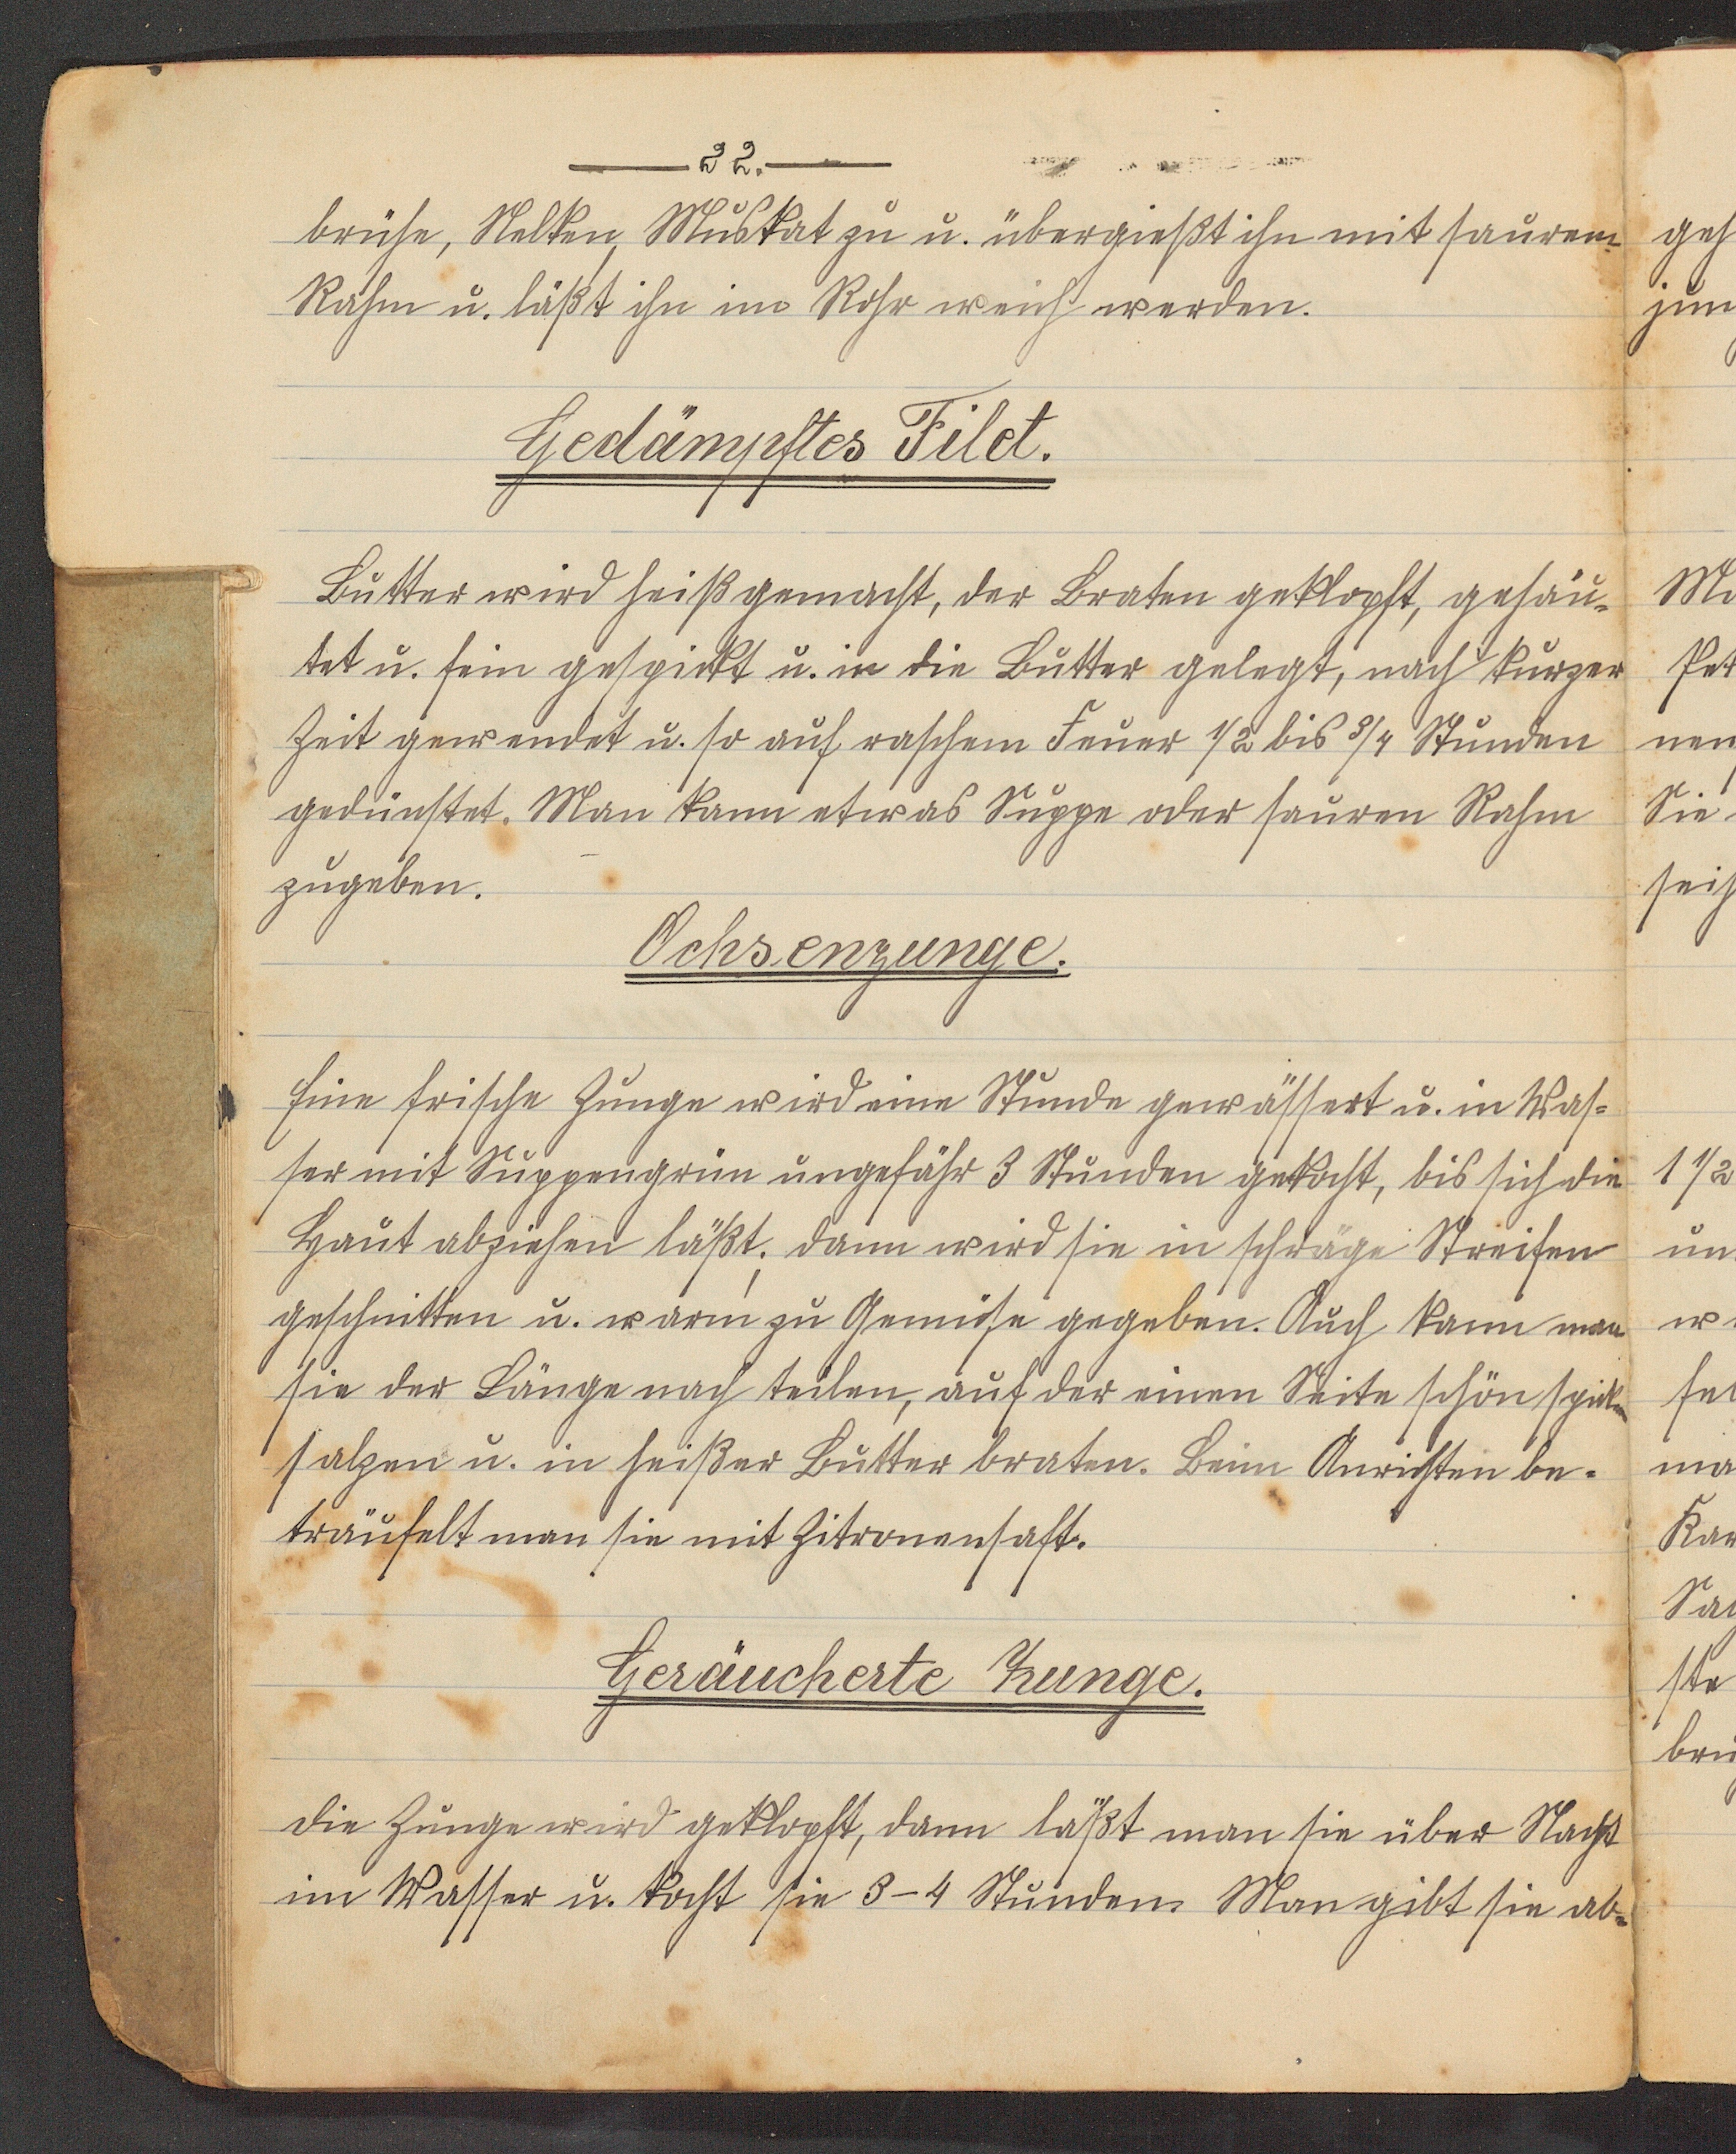 22.
brühe, Nelken, Muskat zu u. übergießt ihn mit saurem
Rahm u. läßt ihn im Rohr weich werden.
Gedämpftes Filet.
Butter wird heiß gemacht, der Braten geklopft, gehäu-
tet u. fein gespickt u. in die Butter gelegt, nach kurzer
Zeit gewendet u. so auf raschem Feuer 1/2 bis 3/4 Stunden
gedünstet. Man kann etwas Suppe oder sauren Rahm
zugeben.
Ochsenzunge.
Eine frische Zunge wird eine Stunde gewässert u. in Was-
ser mit Suppengrün ungefähr 3 Stunden gekocht, bis sich die
Haut abziehen läßt; dann wird sie in schräge Streifen
geschnitten u. warm zu Gemüse gegeben. Auch kann man
sie der Länge nach teilen, auf der einen Seite schön spicken
salzen u. in heißer Butter braten. Beim Anrichten be-
träufelt man sie mit Zitronensaft.
Geräucherte Zunge.
Die Zunge wird geklopft, dann läßt man sie über Nacht
im Wasser u. kocht sie 3-4 Stunden. Man gibt sie ab-
geh
jun
Ma
Pet
nen
Sie
seih
1 1/2
un
w
fel
ma
Kar
ste
brü